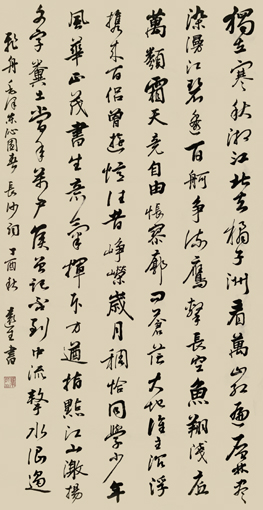 獨立寒秋湘江北去橘子洲看萬山紅遍層林盡
染漫江碧透百舸爭流鷹擊長空魚翔淺底
萬類霜天競自由悵寥廓問蒼茫大地誰主沉浮
攜來百侶曾遊憶往昔崢嶸歲月稠恰同學少年
風華正茂書生意氣揮斥方遒指點江山激揚
文字糞土當年萬戶侯曾記否到中流擊水浪遏
飛舟毛澤東沁園春長沙詞丁酉秋書